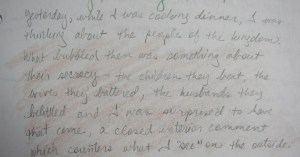 Yesterday, while I was cooking dinner, I was
thinking about the people of the kingdom.
What bubbled then was something about
their secrecy - the children they beat, the
wives they battered, the husbands they
belittled and I was surprised to have
that come, a closed comment
which counters what I "see" was the outside.